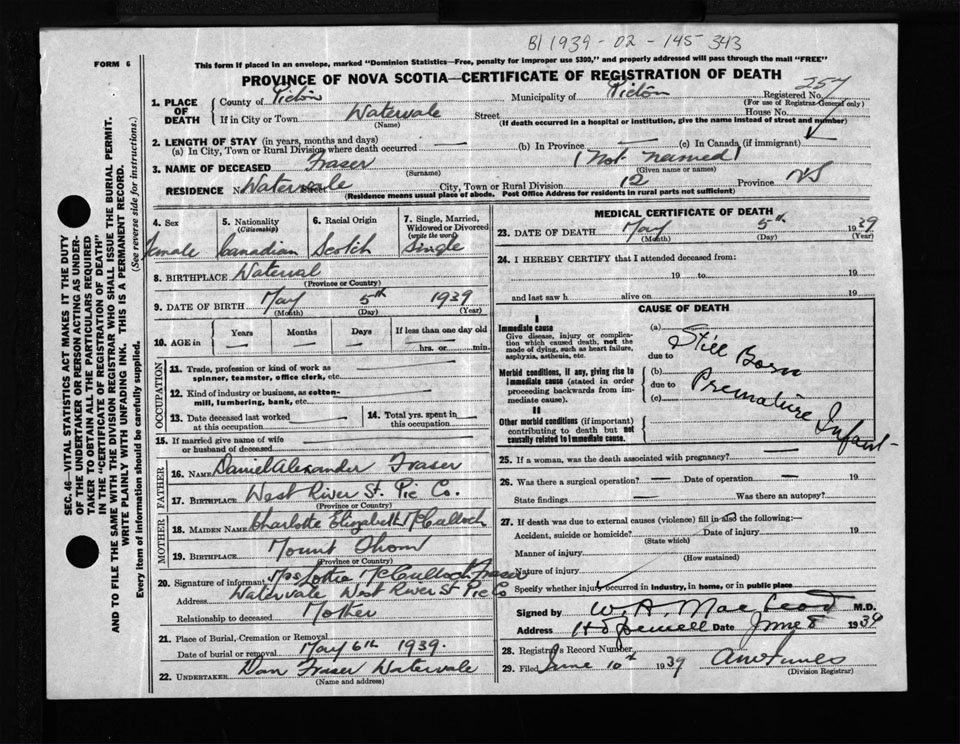 B 1939 - 02 - 145 - 343
FORM 6
This form if placed in an envelope, marked "Dominion Statistics—Free, penalty for improper use $300," and properly addressed will pass through the mail "FREE"
PROVINCE OF NOVA SCOTIA—CERTIFICATE OF REGISTRATION OF DEATH
257
1. PLACE OF DEATH
County of Pictou Municipality of Pictou Registered No.
(For use of Registrar-General only)
If in City or Town Watervale Street House No.
(Name) (If death occurred in a hospital or institution, give the name instead of street and number)
2. LENGTH OF STAY (in years, months and days)
(a) In City, Town or Rural Division where death occurred — (b) In Province — (c) In Canada (if immigrant)
3. NAME OF DECEASED Fraser (Not named)
(Surname) (Given name or names)
RESIDENCE Watervale City, Town or Rural Division 12 Province NS
(Residence means usual place of abode. Post Office Address for residents in rural parts not sufficient)
4. Sex 5. Nationality (Citizenship) 6. Racial Origin 7. Single, Married, Widowed or Divorced (write the word)
Female Canadian Scotch Single
8. BIRTHPLACE Waterval
(Province or Country)
9. DATE OF BIRTH May 5th 1939
(Month) (Day) (Year)
10. AGE in Years Months Days If less than one day old
— — — hrs. or min.
OCCUPATION
11. Trade, profession or kind of work as spinner, teamster, office clerk, etc.
12. Kind of industry or business, as cotton-mill, lumbering, bank, etc.
13. Date deceased last worked at this occupation
14. Total yrs. spent in this occupation
15. If married give name of wife or husband of deceased
FATHER
16. NAME Daniel Alexander Fraser
17. BIRTHPLACE West River St. Pic Co.
(Province or Country)
MOTHER
18. MAIDEN NAME Charlotte Elizabeth McCulloch
19. BIRTHPLACE Mount Thom
(Province or Country)
20. Signature of informant Mrs Lottie McCulloch Fraser
Address Watervale West River St Pic Co
Relationship to deceased Mother
21. Place of Burial, Cremation or Removal
Date of burial or removal May 6th 1939.
22. UNDERTAKER Dan Fraser Watervale
(Name and address)
MEDICAL CERTIFICATE OF DEATH
23. DATE OF DEATH May 5th 1939
(Month) (Day) (Year)
24. I HEREBY CERTIFY that I attended deceased from:
19 to 19
and last saw h alive on 19
CAUSE OF DEATH
I
Immediate cause
Give disease, injury or complication which caused death, not the mode of dying, such as heart failure, asphyxia, asthenia, etc.
Morbid conditions, if any, giving rise to immediate cause (stated in order proceeding backwards from immediate cause).
II
Other morbid conditions (if important) contributing to death but not causally related to immediate cause.
(a) Still Born
due to
(b) Premature Infant
due to
(c)
25. If a woman, was the death associated with pregnancy? —
26. Was there a surgical operation? — Date of operation — 19
State findings Was there an autopsy?
27. If death was due to external causes (violence) fill in also the following:
Accident, suicide or homicide? Date of injury 19
(State which)
Manner of injury
(How sustained)
Nature of injury
Specify whether injury occurred in industry, in home, or in public place
Signed by W. A. MacLeod M.D.
Address Hopewell Date June 8 1939
28. Registrar's Record Number
29. Filed June 10th 1939
(Division Registrar)
SEC. 46—VITAL STATISTICS ACT MAKES IT THE DUTY
OF THE UNDERTAKER OR PERSON ACTING AS UNDER-
TAKER TO OBTAIN ALL THE PARTICULARS REQUIRED
IN THE "CERTIFICATE OF REGISTRATION OF DEATH"
AND TO FILE THE SAME WITH THE DIVISION REGISTRAR WHO SHALL ISSUE THE BURIAL PERMIT.
WRITE PLAINLY WITH UNFADING INK. THIS IS A PERMANENT RECORD.
Every item of information should be carefully supplied. (See reverse side for instructions.)